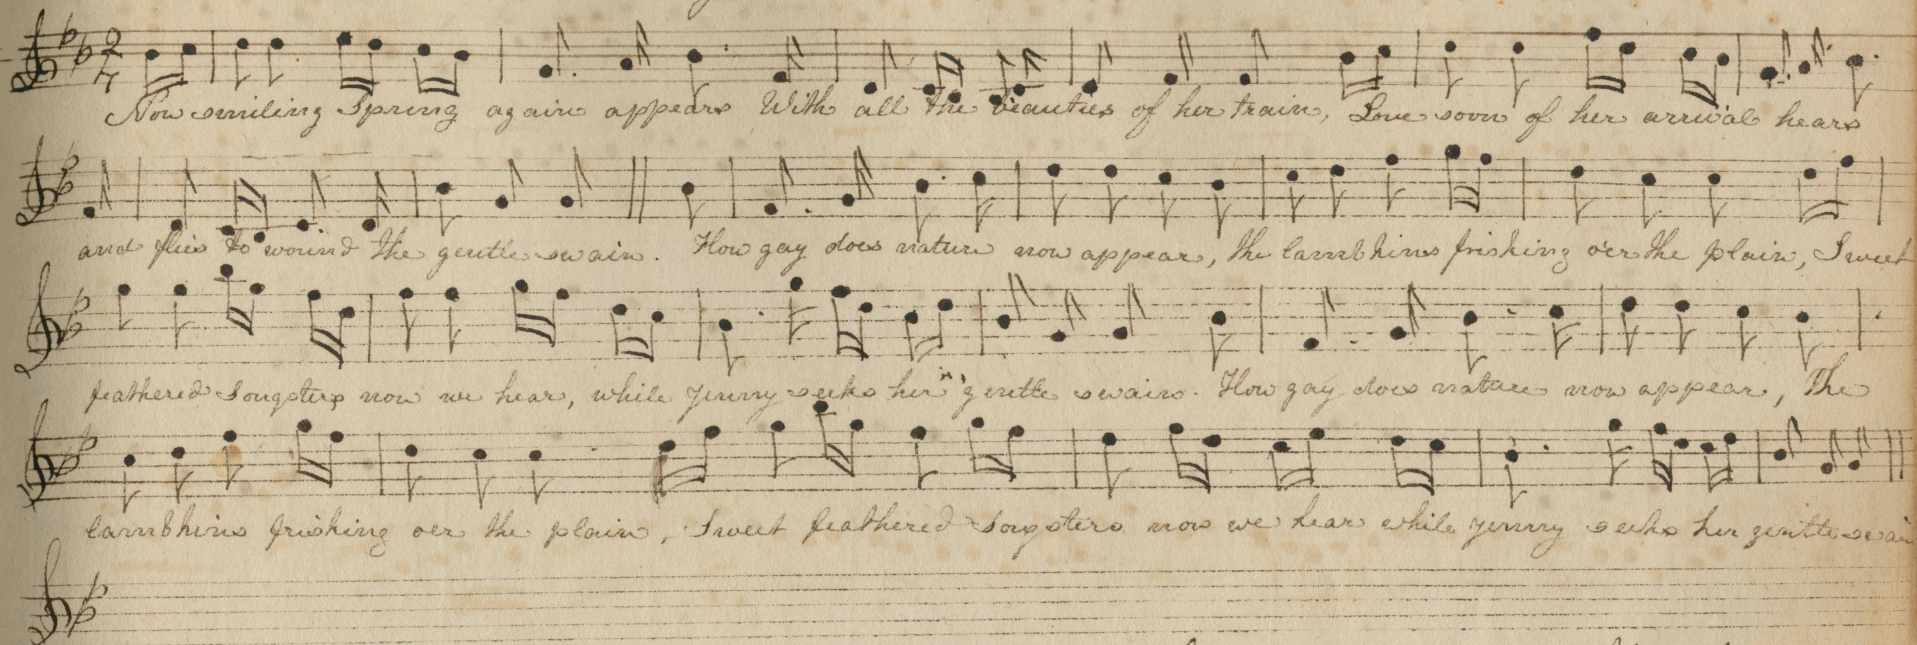 Now smiling Spring again appears With all the beauties of her train, Love soon of her arrival hears
and flies to wound the gentle swain. How gay does nature now appear, the lambkins frisking o'er the plain, Sweet
feathered Songsters now we hear, while Jenny seeks her gentle swain. How gay does nature now appear, The
lambkins frisking oer the plain, Sweet feathered Songsters now we hear while Jenny seeks her gentle swain